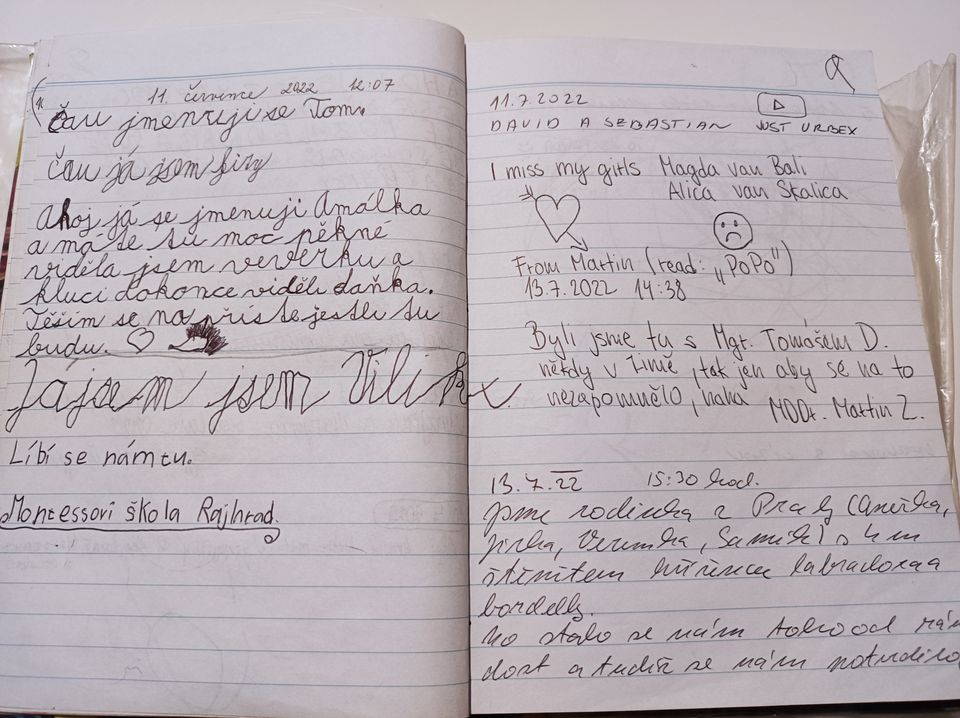 11. července 2022 12:07
Čau jmenuji se Tom.
čau já jsem
Ahoj já se jmenuji Amálka
a má se tu moc pěkně
viděla jsem veverku a
kluci dokonce viděli daňka.
Těším se na příště jestli tu
budu.
Jajsem jsem Vilík
Líbí se nám tu.
Montessori škola Rajhrad.
11.7.2022
DAVID A SEBASTIAN JUST URBEX
I miss my girls Magda van Bali
Alica van Skalica
From Martin (read: „PoPo")
13.7.2022 14:38
Byli jsme tu s Mgr. Tomášem D.
někdy v zimě, tak jen aby se na to
nezapomnělo, haha MDDr. Martin Z.
13.7.22 15:30 hod.
Jsme rodinka z Prahy (Anežka,
Jirka, Verunka, Samík) s
štěnětem křížence labradora a
.
stalo se nám toho od
dost a tudíž se nám